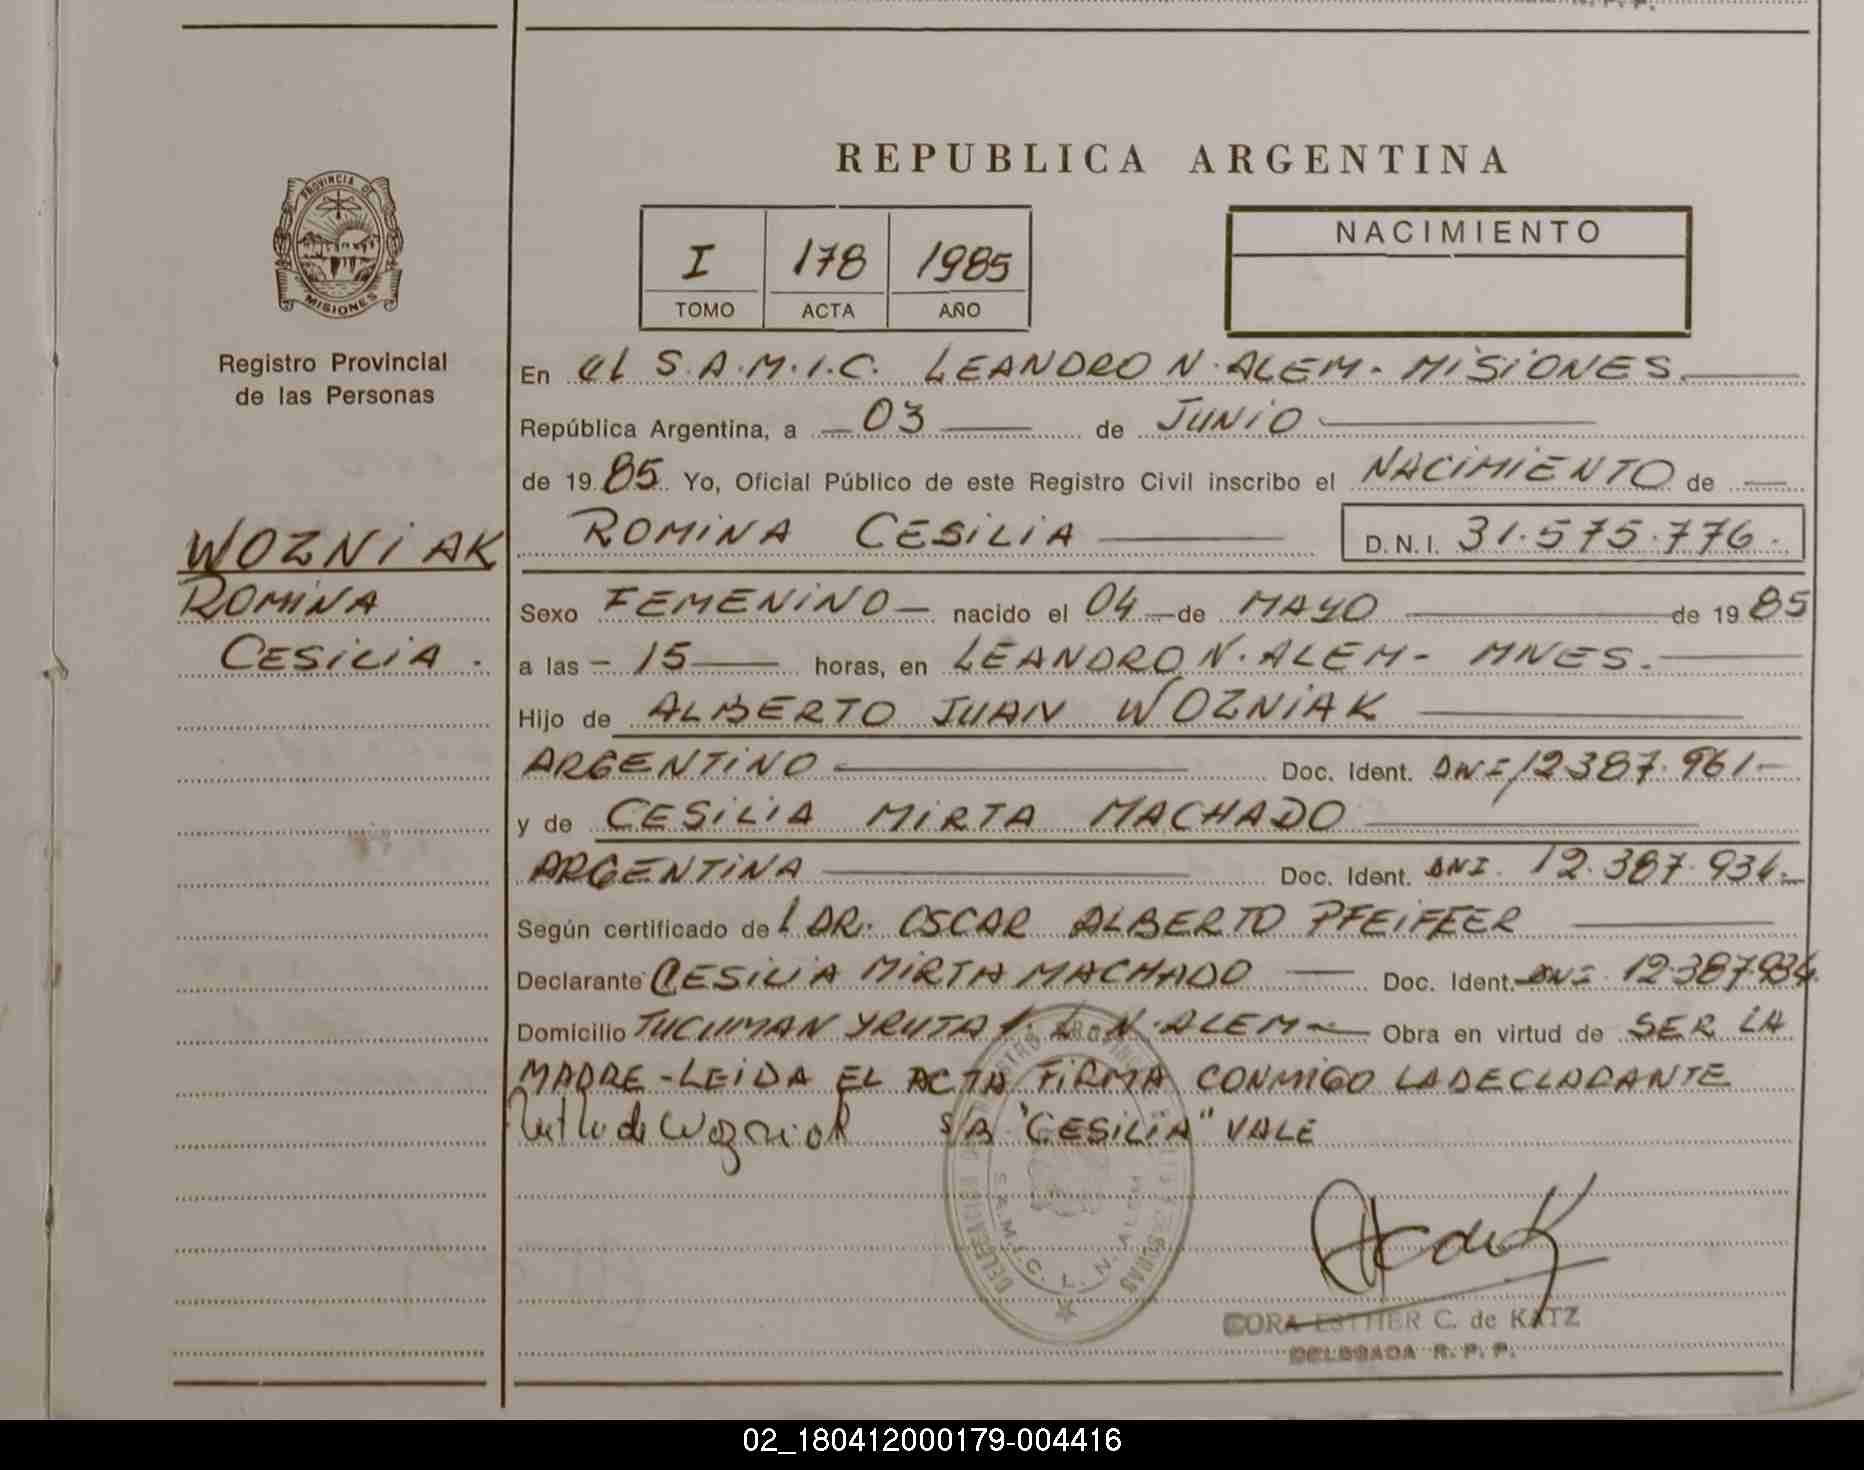 REPUBLICA ARGENTINA
PROVINCIA DE
MISIONES
Registro Provincial
de las Personas
I 178 1985
TOMO ACTA AÑO
NACIMIENTO
En el S.A.M.I.C. LEANDRO N. ALEM - MISIONES
República Argentina, a 03 de JUNIO
de 1985 Yo, Oficial Público de este Registro Civil inscribo el NACIMIENTO de
WOZNIAK
ROMINA
CESILIA.
ROMINA CESILIA D.N.I. 31.575.776.
Sexo FEMENINO nacido el 04 de MAYO de 1985
a las 15 horas, en LEANDRO N. ALEM - MNES.
Hijo de ALBERTO JUAN WOZNIAK
ARGENTINO Doc. Ident. DNI 12387.961
y de CESILIA MIRTA MACHADO
ARGENTINA Doc. Ident. DNI. 12.387.934
Según certificado del DR. OSCAR ALBERTO PFEIFFER
Declarante CESILIA MIRTA MACHADO Doc. Ident. DNI 12.387.934.
Domicilio TUCUMAN Y RUTA L. N. ALEM Obra en virtud de SER LA
MADRE - LEIDA EL ACTA FIRMA CONMIGO LA DECLARANTE
de Wozniak S/R "CESILIA" VALE
S.A.M.I.C. L. N. ALEM
CORA ESTHER C. de KATZ
DELEGADA R. P. P.
02_180412000179-004416